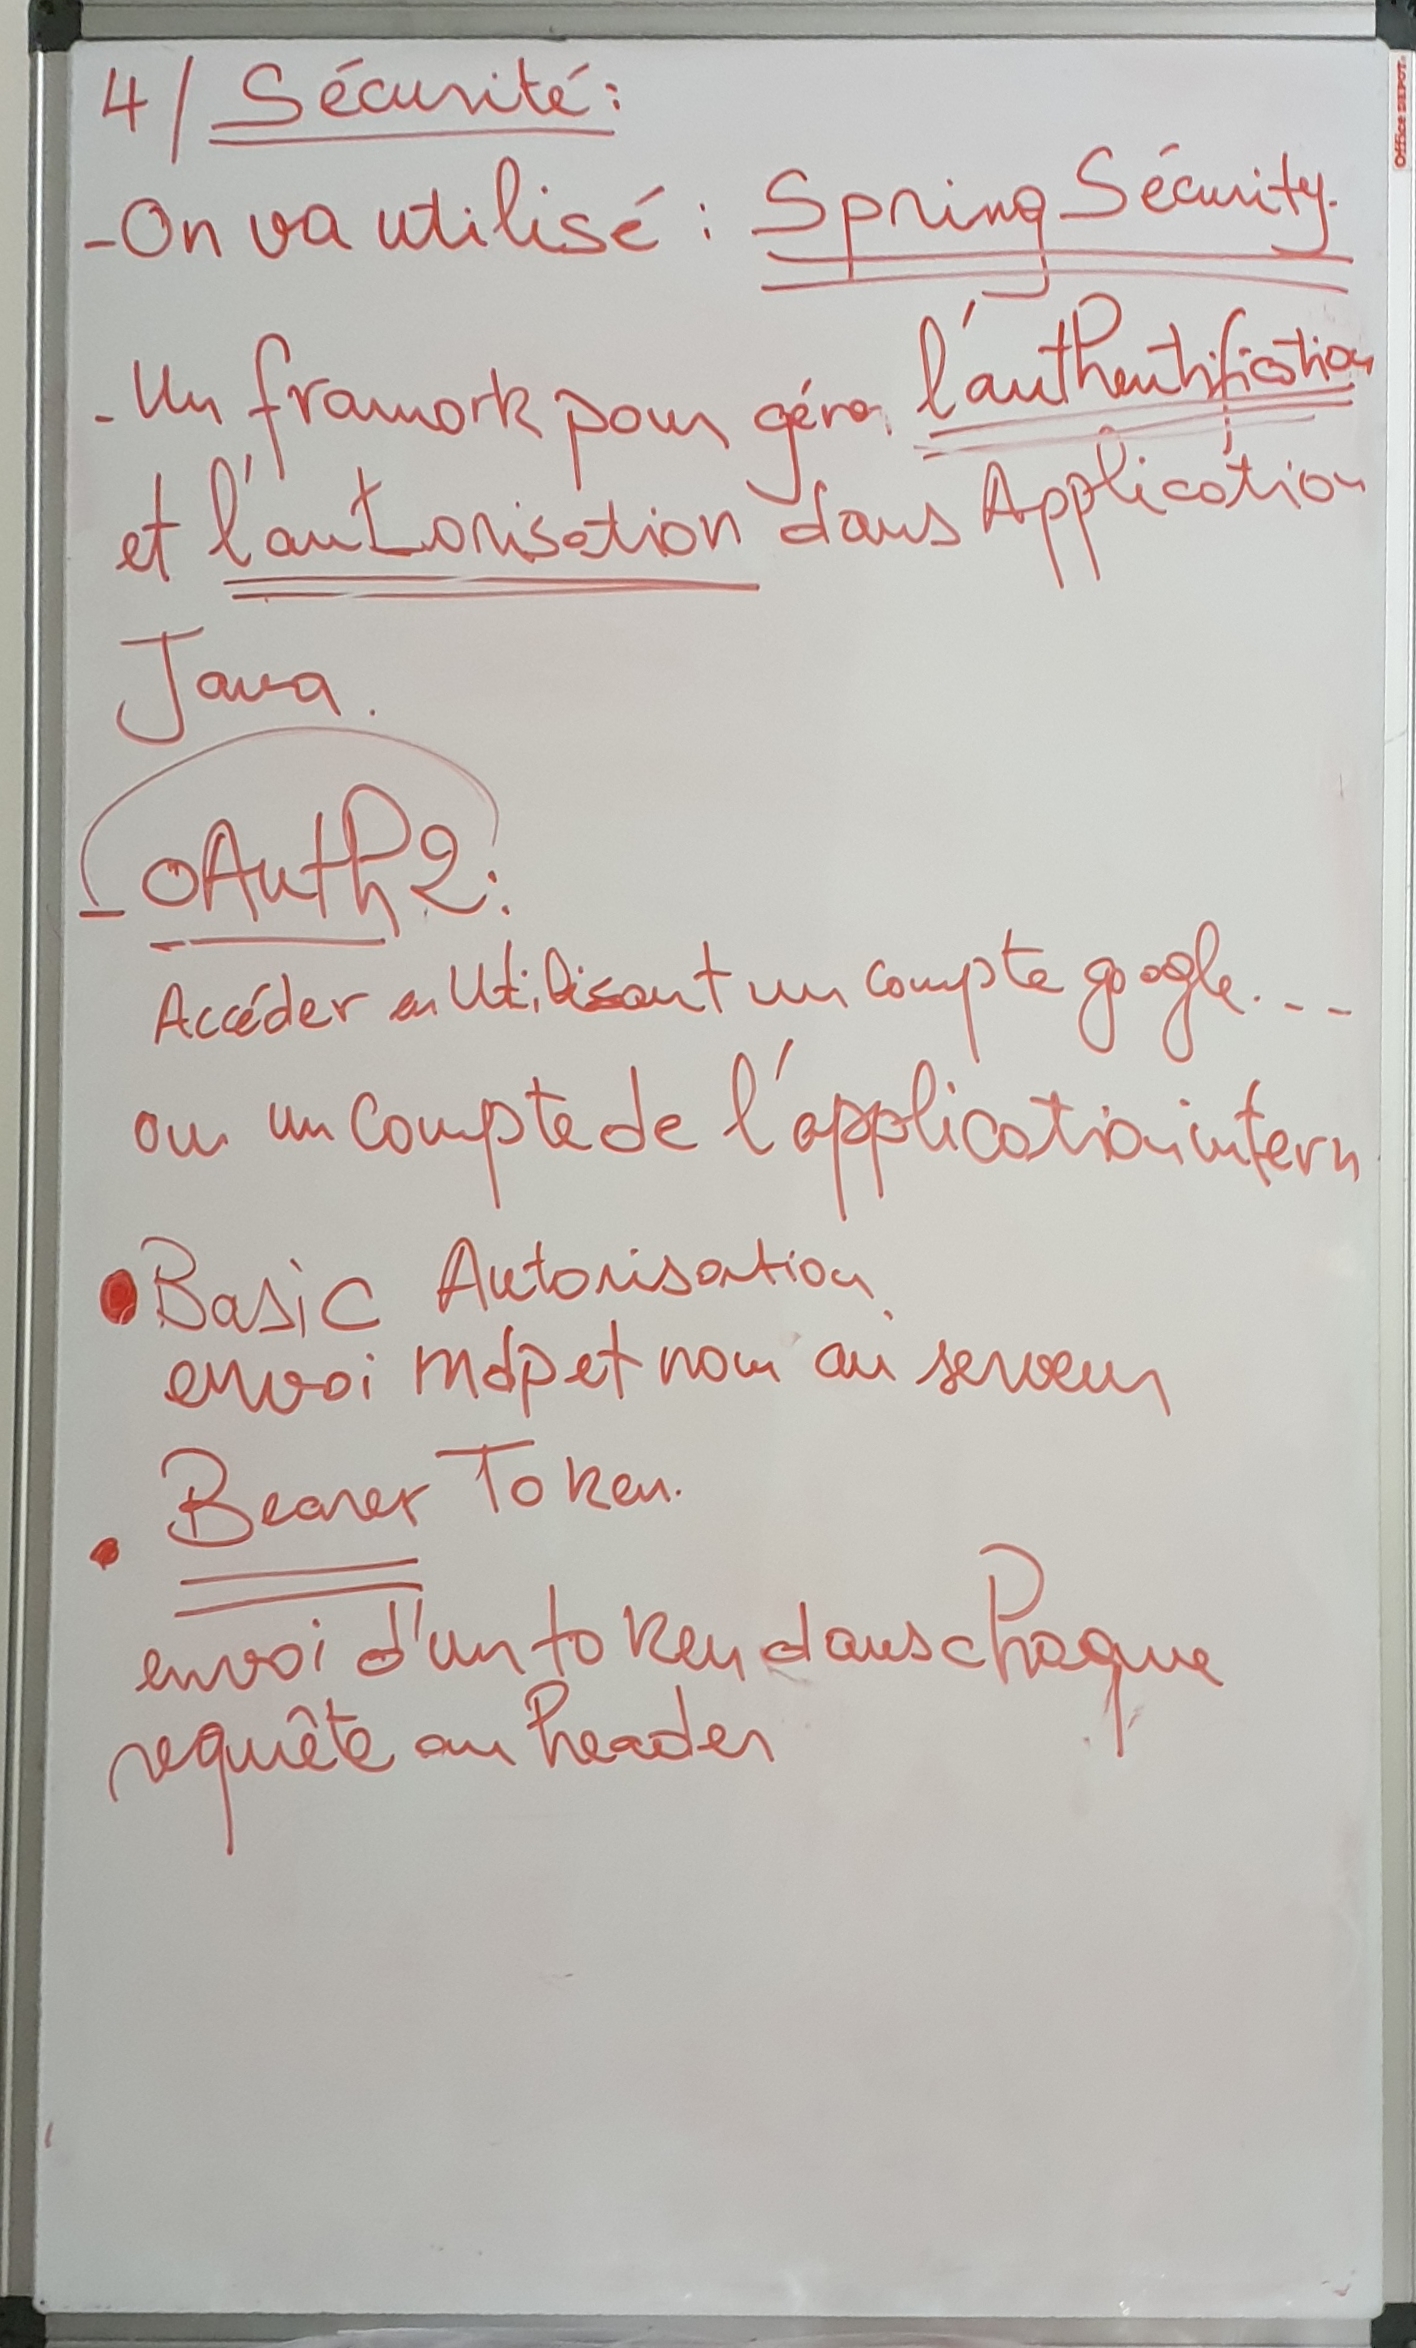 4/ Sécurité:
- On va utilisé : Spring Sécurity.
- Un framork pour gérer l'authentification
et l'autorisation dans Application
Java.
- OAuth2:
Accéder en Utilisant un compte google...
ou un compte de l'application intern
• Basic Autorisation
envoi mdp et nom au serveur
• Bearer Token.
envoi d'un token dans chaque
requête au header
Office DEPOT